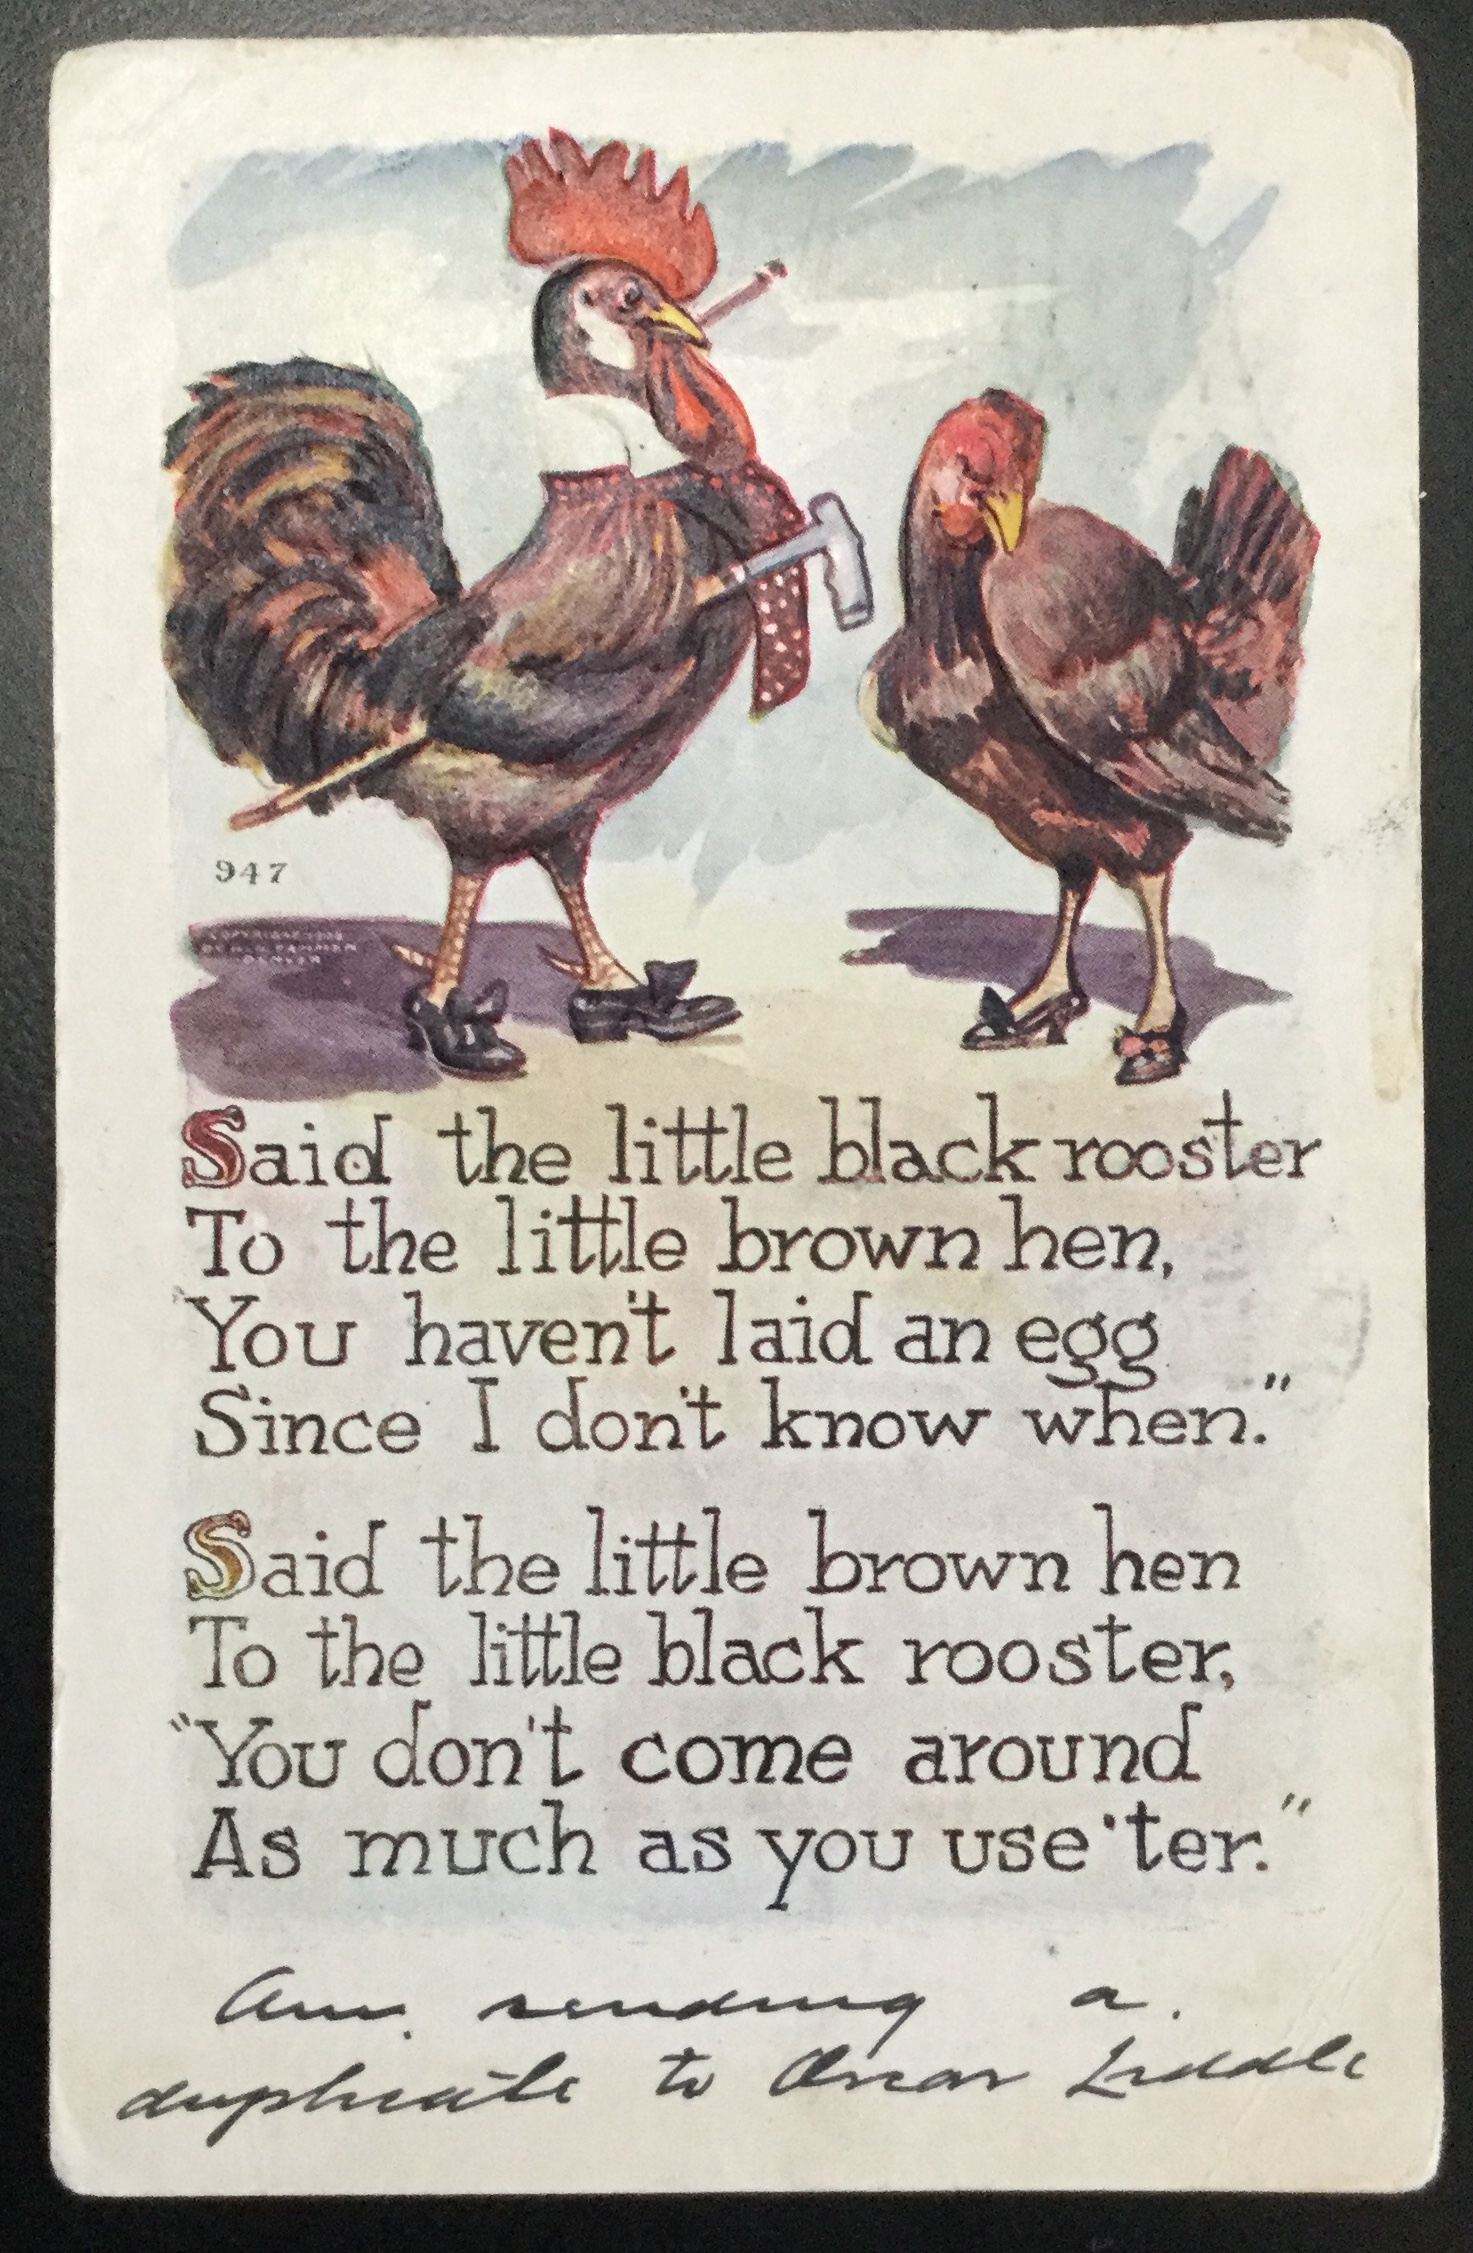 947
COPYRIGHT
DENVER
Said the little black rooster
To the little brown hen,
You haven't laid an egg
Since I don't know when."
Said the little brown hen
To the little black rooster,
"You don't come around
As much as you use'ter."
Am. sending a.
duplicate to Oscar Liddle